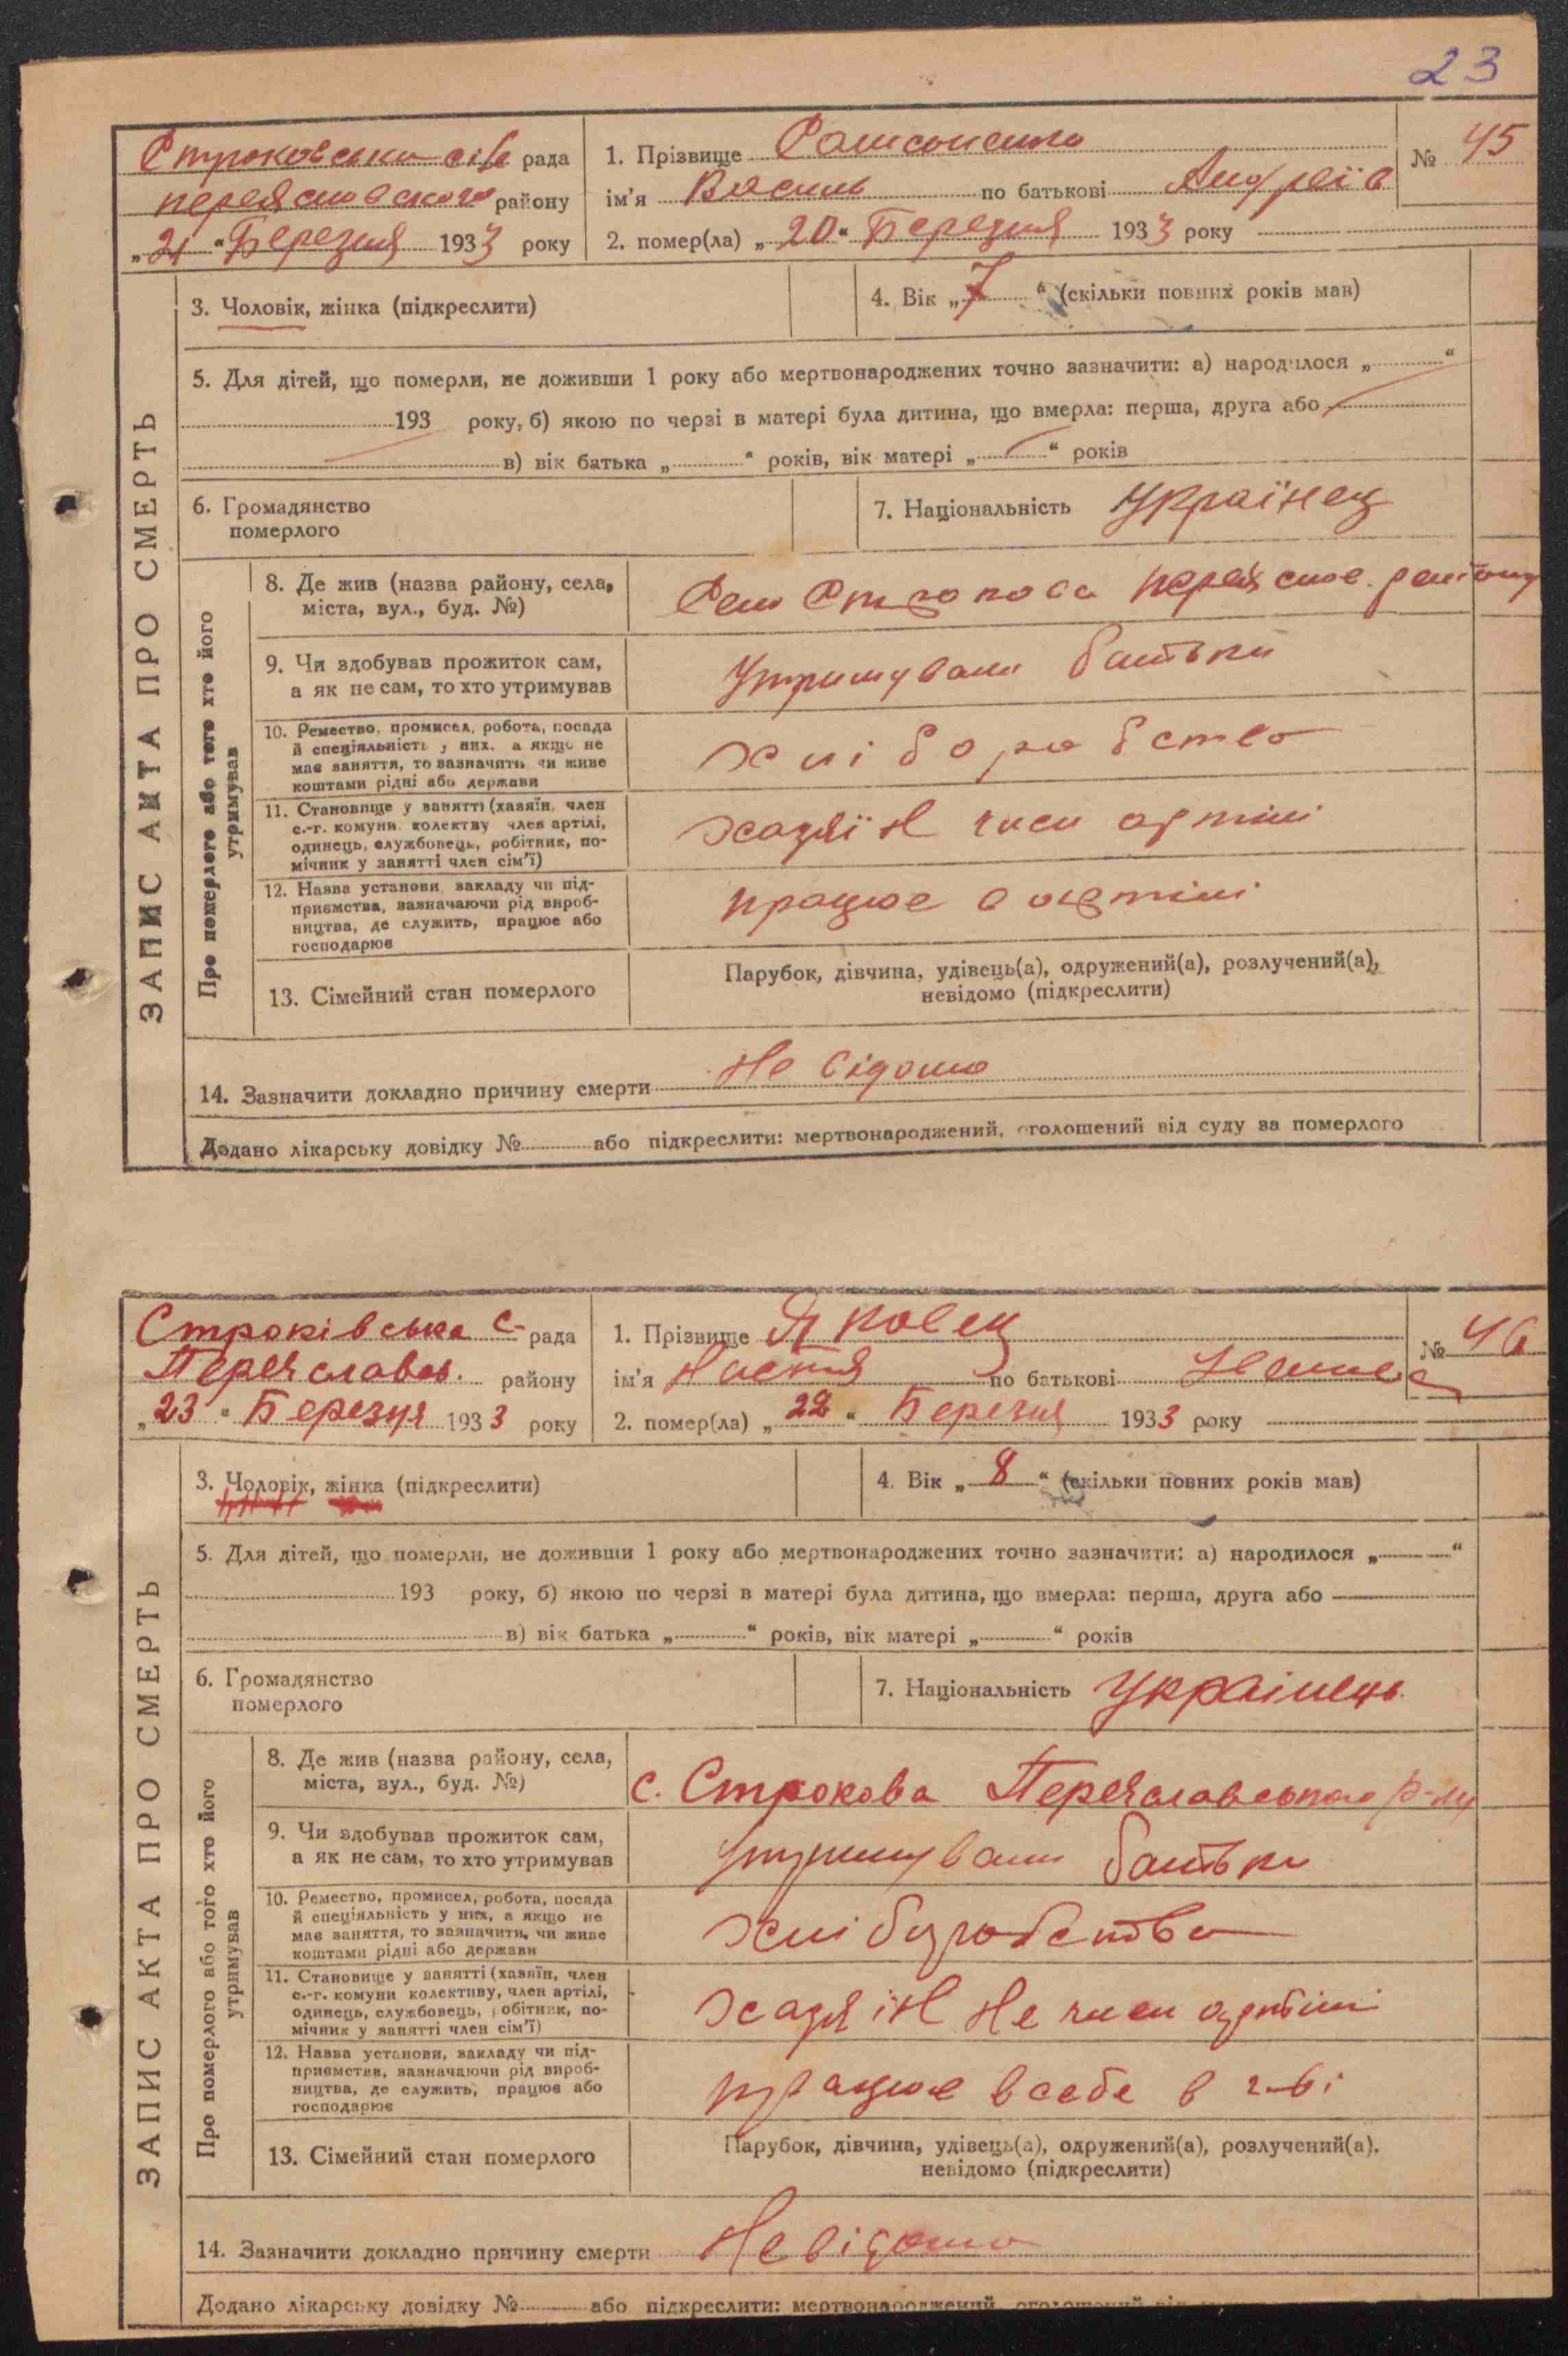 23
Строковська сіл рада
1. Прізвище
№ 45
переяславского району
ім'я Василь по батькові Андреїв
„21“ Березня 1933 року
2. помер(ла) „20“ Березня 1933 року
3. Чоловік, жінка (підкреслити)
4. Вік „7“ (скільки повних років мав)
5. Для дітей, що померли, не доживши 1 року або мертвонароджених точно зазначити: а) народилося „ “
193 року, б) якою по черзі в матері була дитина, що вмерла: перша, друга або
в) вік батька „ “ років, вік матері „ “ років
6. Громадянство
померлого
7. Національність Українец
ЗАПИС АКТА ПРО СМЕРТЬ
Про померлого або того хто його
утримував
8. Де жив (назва району, села,
міста, вул., буд. №)
Село Строкова переяслов. району
9. Чи здобував прожиток сам,
а як не сам, то хто утримував
Утримували батьки
10. Ремество, промисел, робота, посада
й спеціяльність у них, а якщо не
має заняття, то зазначити чи живе
коштами рідні або держави
хліборобство
11. Становище у занятті (хазяїн, член
с.-г. комуни колективу член артілі,
одинець, службовець, робітник, по-
мічник у занятті член сім'ї)
хазяїн член артілі
12. Назва установи закладу чи під-
приємства, зазначаючи рід вироб-
ництва, де служить, працює або
господарює
працює в артілі
13. Сімейний стан померлого
Парубок, дівчина, удівець(а), одружений(а), розлучений(а),
невідомо (підкреслити)
14. Зазначити докладно причину смерти Не відомо
Додано лікарську довідку № або підкреслити: мертвонароджений, оголошений від суду за померлого
Строківська с- рада
1. Прізвище Яковец
№ 46
Переяславсь. району
ім'я Настя по батькові
„23“ Березня 1933 року
2. помер(ла) „22“ Березня 1933 року
3. Чоловік, жінка (підкреслити)
4. Вік „8“ (скільки повних років мав)
5. Для дітей, що померли, не доживши 1 року або мертвонароджених точно зазначити: а) народилося „ “
193 року, б) якою по черзі в матері була дитина, що вмерла: перша, друга або
в) вік батька „ “ років, вік матері „ “ років
6. Громадянство
померлого
7. Національність Українець.
ЗАПИС АКТА ПРО СМЕРТЬ
Про померлого або того хто його
утримував
8. Де жив (назва району, села,
міста, вул., буд. №)
с. Строкова Переяславського р-ну
9. Чи здобував прожиток сам,
а як не сам, то хто утримував
утримували батьки
10. Ремество, промисел, робота, посада
й спеціяльність у них, а якщо не
має заняття, то зазначити, чи живе
коштами рідні або держави
хліборобство
11. Становище у занятті (хазяїн, член
с.-г. комуни колективу, член артілі,
одинець, службовець, робітник, по-
мічник у занятті член сім'ї)
хазяїн не член артілі
12. Назва установи, закладу чи під-
приємства, зазначаючи рід вироб-
ництва, де служить, працює або
господарює
працює в себе в г-ві
13. Сімейний стан померлого
Парубок, дівчина, удівець(а), одружений(а), розлучений(а).
невідомо (підкреслити)
14. Зазначити докладно причину смерти Невідомо
Додано лікарську довідку № або підкреслити: мертвонароджений оголошений від